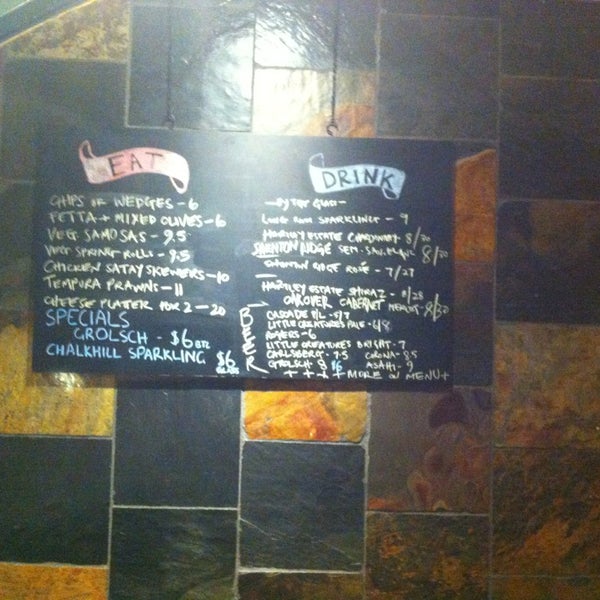 EAT
CHIPS OR WEDGES - 6
FETTA + MIXED OLIVES - 6
VEG SAMOSAS - 9.5
VEG SPRING ROLLS - 9.5
CHICKEN SATAY SKEWERS - 10
TEMPURA PRAWNS - 11
CHEESE PLATER FOR 2 - 20
SPECIALS
GROLSCH - $6 BTL
CHALKHILL SPARKLING $6 GLASS
DRINK
- BY THE GLASS -
SPARKLING - 9
HARTLEY ESTATE CHARDONNAY 8/30
SWENTON RIDGE SEM. SAV. BLANC 8/30
SWENTON RIDGE ROSÉ - 7/27
HARTLEY ESTATE SHIRAZ - 8/28
CABERNET MERLOT - 8/30
BEER
CASCADE P/L -
LITTLE CREATURES PALE -
ROGERS - 6
LITTLE CREATURES BRIGHT - 7
CARLSBERG - 7.5 CORONA - 8.5
GROLSCH - 8 $6 ASAHI - 9
+ + + + MORE ON MENU +